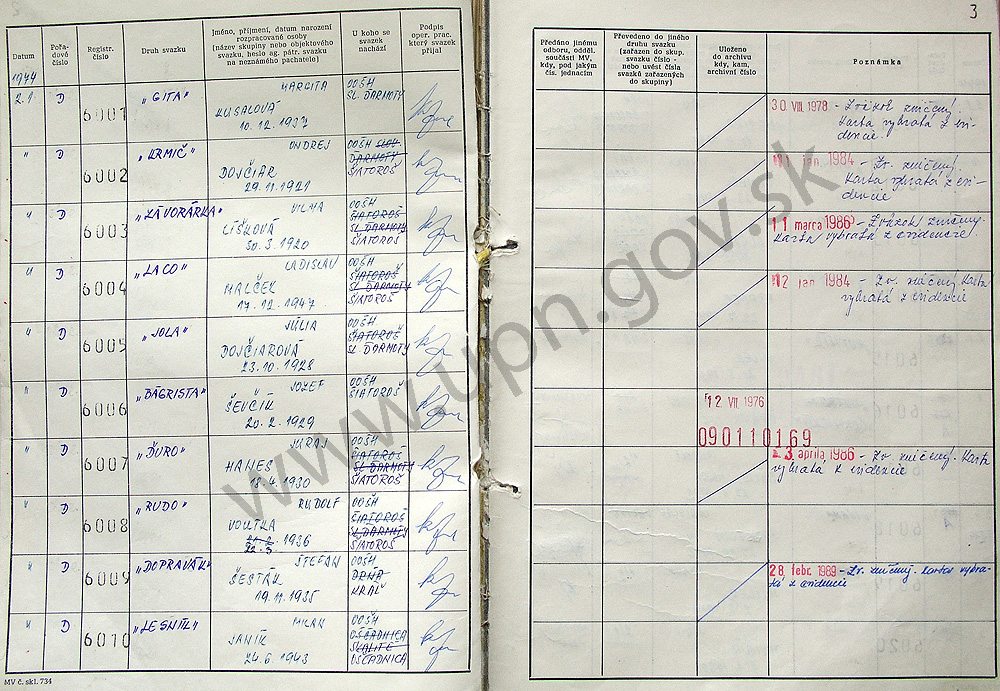 Datum
Pořadové číslo
Registr. číslo
Druh svazku
Jméno, příjmení, datum narození
rozpracované osoby
(název skupiny nebo objektového
svazku, heslo ag. pátr. svazku
na neznámého pachatele)
U koho se
svazek
nachází
Podpis
oper. prac.
který svazek
přijal
1974
2.1. D 6001 "GITA" MARGITA
KUSALOVÁ
10. 12. 1937
OOŠH
SL. ĎARMOTY
" D 6002 "URMIČ" ONDREJ
DOJČIAR
29. 11. 1921
OOŠH SLOV.
ĎARMOTY
ŠIATOROŠ
" D 6003 "ZÁVORÁRKA" VILMA
LÍŠKOVÁ
30. 3. 1920
OOŠH
ŠIATOROŠ
SL. ĎARMOTY
ŠIATOROŠ
" D 6004 "LACO" LADISLAV
MALČEK
17. 12. 1947
OOŠH
ŠIATOROŠ
SL. ĎARMOTY
ŠIATOROŠ
" D 6005 "JOLA" JÚLIA
DOJČIAROVÁ
23. 10. 1928
OOŠH
ŠIATOROŠ
SL. ĎARMOTY
" D 6006 "BÁGRISTA" JOZEF
ŠEVČÍK
20. 2. 1929
OOŠH
ŠIATOROŠ
" D 6007 "ĎURO" JURAJ
HANES
18. 4. 1930
OOŠH
ŠIATOROŠ
SL. ĎARMOTY
ŠIATOROŠ
" D 6008 "RUDO" RUDOLF
VOLTKA
22. 3. 1936
OOŠH
ŠIATOROŠ
SL. ĎARMOTY
ŠIATOROŠ
" D 6009 "DOPRAVÁK" ŠTEFAN
ŠESTÁK
19. 11. 1935
OOŠH
KRÁĽ
" D 6010 "LESNÍK" MILAN
JANÍK
24. 6. 1943
OOŠH
OŠČADNICA
SKALITÉ
OŠČADNICA
MV č. skl. 734
3
Předáno jinému
odboru, odděl.
součásti MV,
kdy, pod jakým
čís. jednacím
Převedeno do jiného
druhu svazku
(zařazen do skup.
svazku číslo -
nebo uvést čísla
svazků zařazených
do skupiny)
Uloženo
do archivu
kdy, kam,
archivní číslo
Poznámka
30. VIII. 1978 - Zväzok zničený.
Karta vybratá z evi-
dencie
jan. 1984 - Zv. zničený.
Karta vybratá z evi-
dencie
11 marca 1986 - Zväzok zničený.
Karta vybratá z evidencie.
2 jan. 1984 - Zv. zničený. Karta
vybratá z evidencie
12. VII. 1976
090110169
23. apríla 1986 - Zv. zničený. Karta
vybratá z evidencie
28. febr. 1989 - Zv. zničený. Karta vybra-
tá z evidencie
www.upn.gov.sk